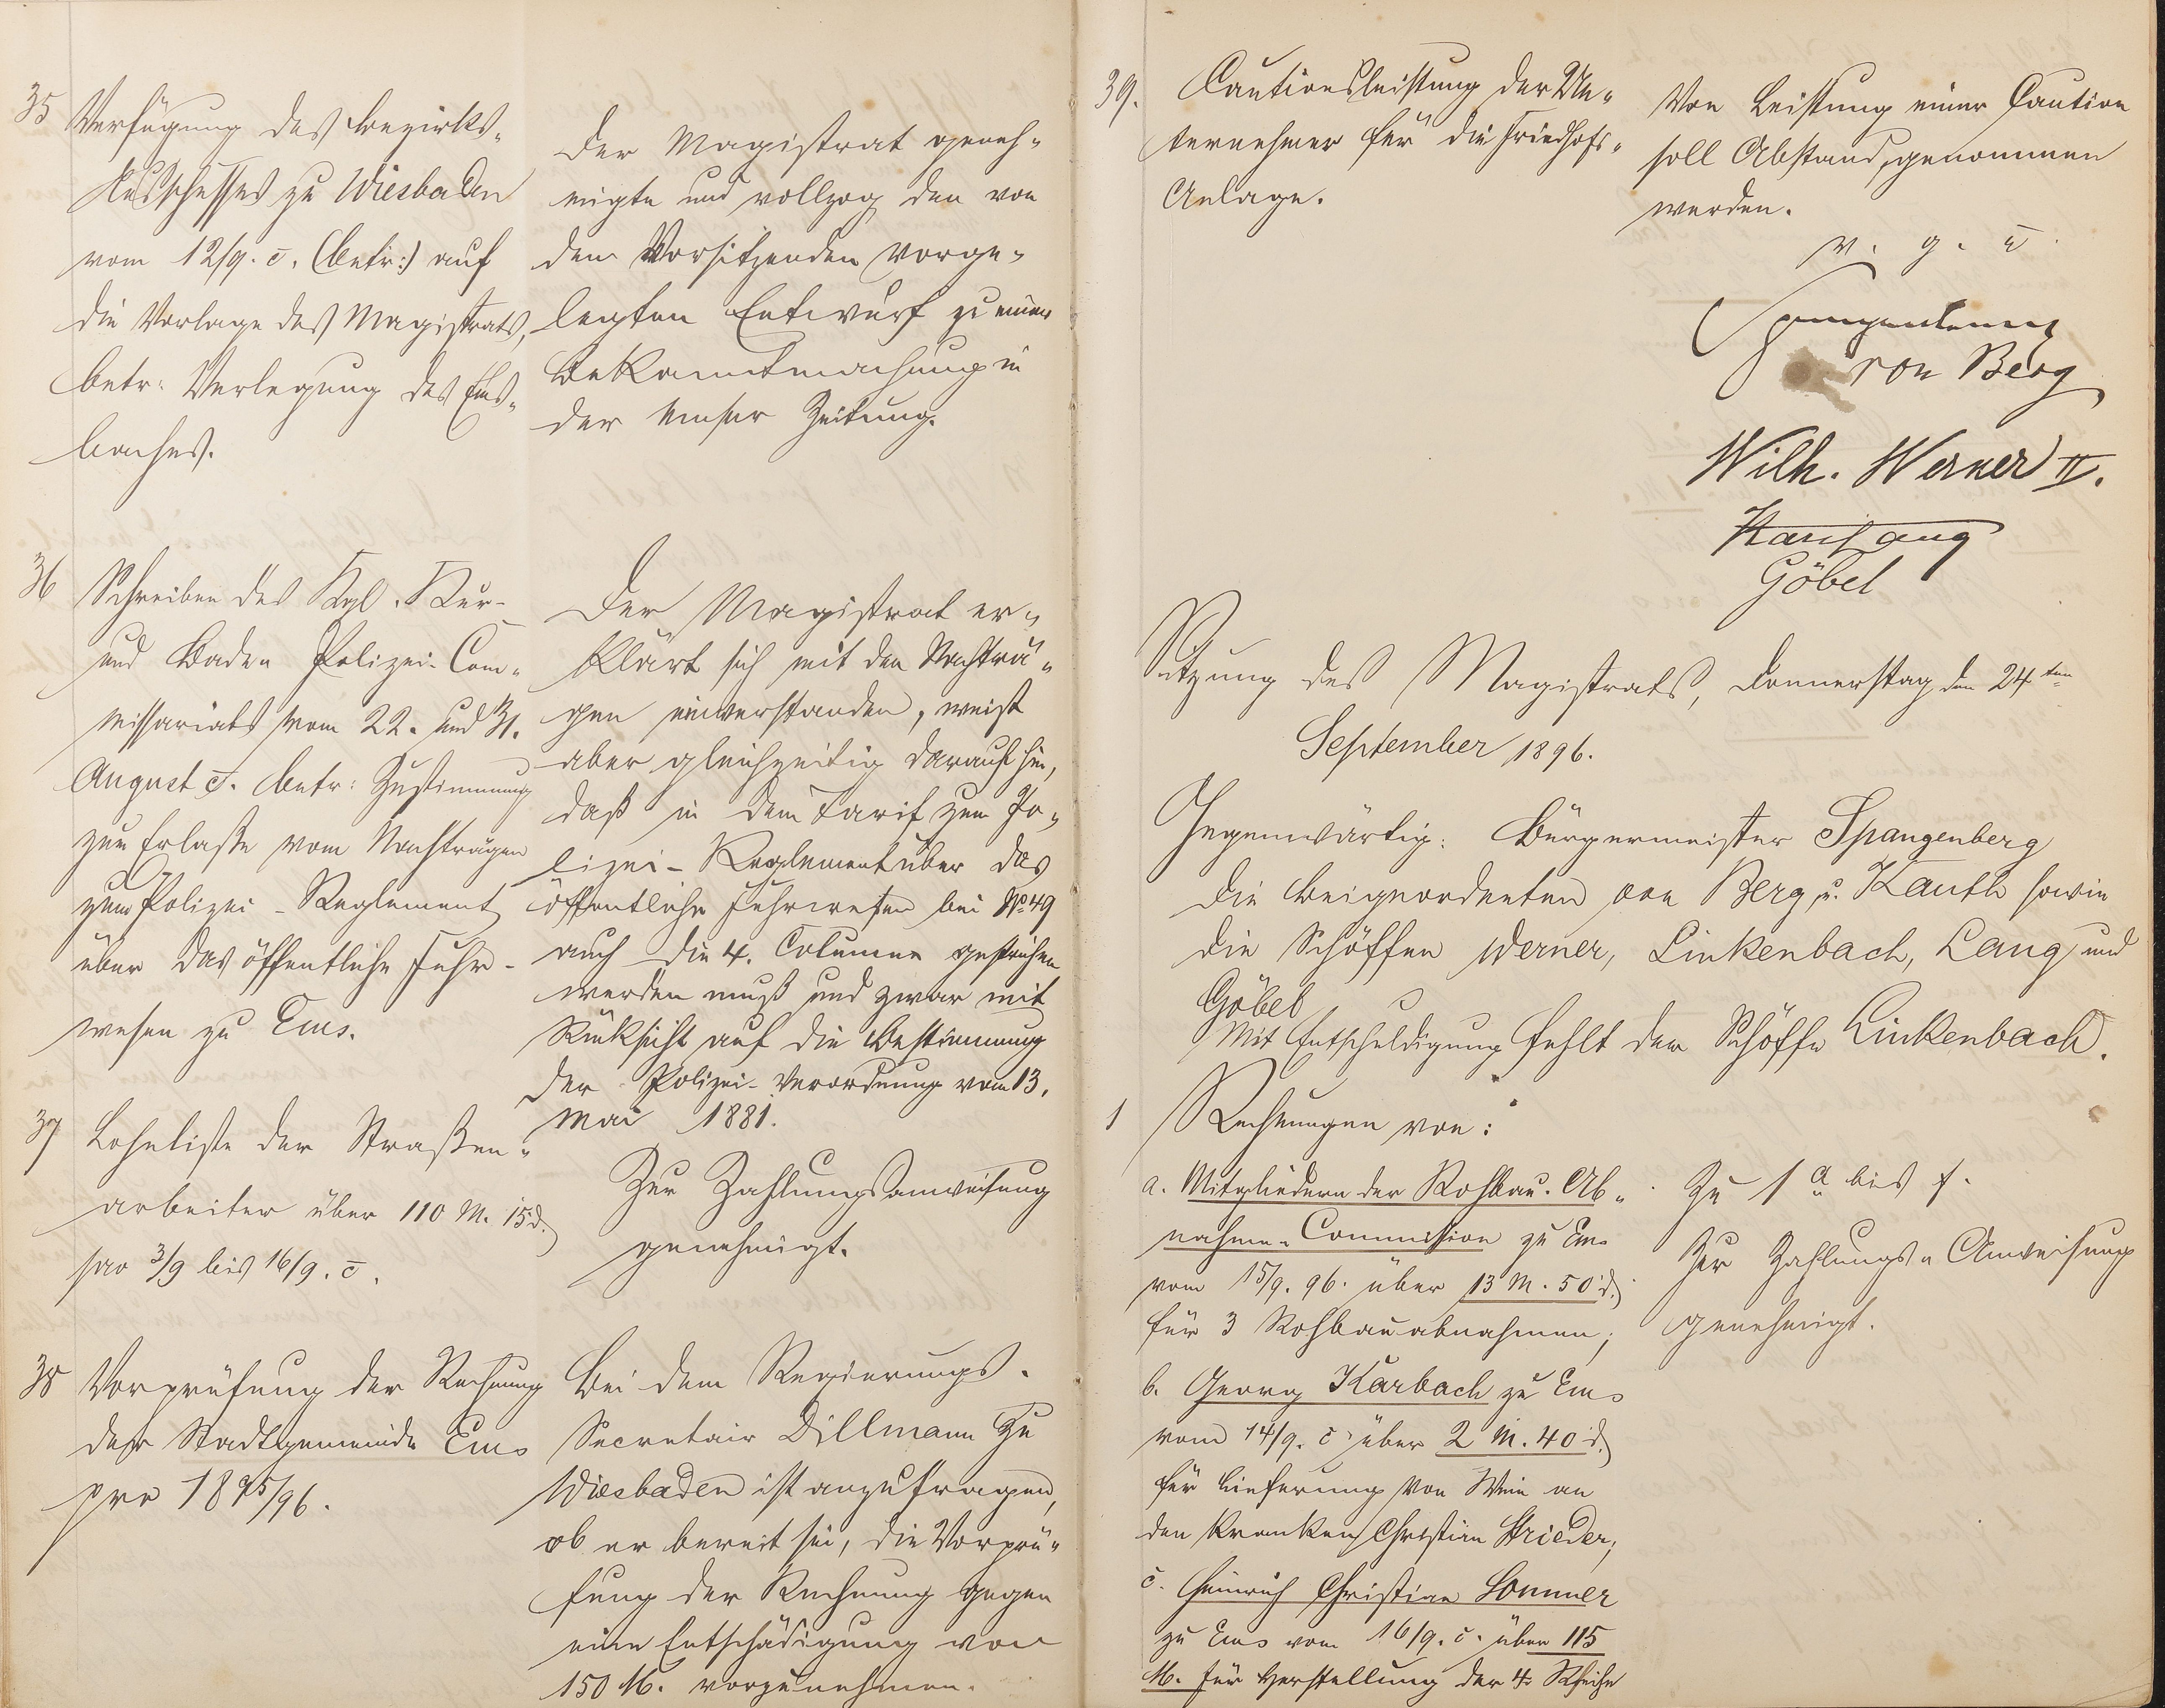 35
Verfügung des Bezirks-
Ausschusses zu Wiesbaden
vom 12/9. c. (betr:) auf
die Vorlage des Magistrats,
betr: Verlegung des Ems-
baches.
Der Magistrat geneh-
migte und vollzog den von
dem Vorsitzenden vorge-
legten Entwurf zu einer
Bekanntmachung in
der Emser Zeitung.
36
Schreiben des Kgl. Kur-
und Baden Polizei-Com-
missariats vom 22. und 31.
August c. betr: Zustimmung
zum Erlaße von Nachträgen
zum Polizei-Reglement
über das öffentliche Fuhr-
wesen zu Ems.
Der Magistrat er-
klärt sich mit den Nachträ-
gen einverstanden, weist
aber gleichzeitig darauf hin,
daß in dem Tarif zum Po-
lizei-Reglement über das
öffentliche Fuhrwesen bei No 49
auch die 4. Columne gestrichen
werden muß und zwar mit
Rücksicht auf die Bestimmung
der Polizei-Verordnung vom 13.
Mai 1881.
37
Lohnliste der Straßen-
arbeiter über 110 M. 15 d.
pro 3/9 bis 16/9. c.
Zur Zahlungsanweisung
genehmigt.
38
Vorprüfung der Rechnung
der Stadtgemeinde Ems
pro 1895/96.
Bei dem Regierungs-
Secretair Dillmann zu
Wiesbaden ist anzufragen,
ob er bereit sei, die Vorprü-
fung der Rechnung gegen
eine Entschädigung von
150 M. vorzunehmen.
39.
Cautionsleistung der Un-
ternehmer für die Friedhofs-
Anlage.
Von Leistung einer Caution
soll Abstand genommen
werden.
v. g. u.
Spangenberg
von Berg
Wilh. Werner II.
Kauth Lang
Göbel
Sitzung des Magistrats, Donnerstag den 24ten
September 1896.
Gegenwärtig: Bürgermeister Spangenberg
die Beigeordneten von Berg u. Kauth sowie
die Schöffen Werner, Linkenbach, Lang und
Göbel
Mit Entschuldigung fehlt der Schöffe Linkenbach.
1
Rechnungen von:
a. Mitgliedern der Rohbau-Ab-
nahme-Commission zu Ems
vom 15/9. 96. über 13 M. 50 d.
für 3 Rohbauabnahmen;
b. Georg Karbach zu Ems
vom 14/9. c. über 2 M. 40 d.
für Lieferung von Wein an
den Kranken Christian Strieder;
c. Heinrich Christian Sommer
zu Ems vom 16/9. c. über 115
M. für Herstellung der 4. Reihe
Zu 1 a bis f.
Zur Zahlungs-Anweisung
genehmigt.